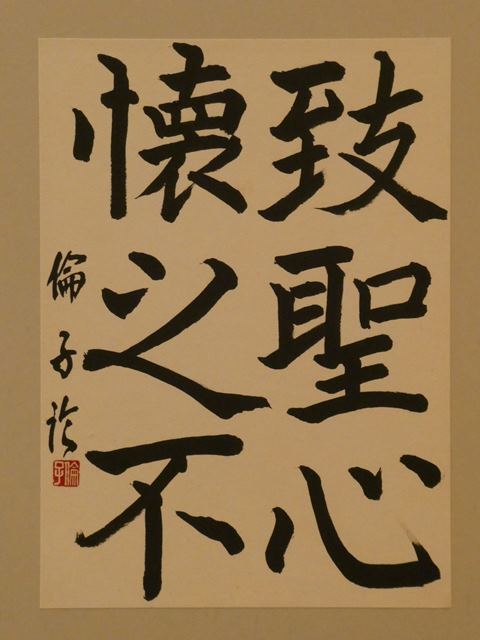 致聖心
懐之不
倫子臨
倫子